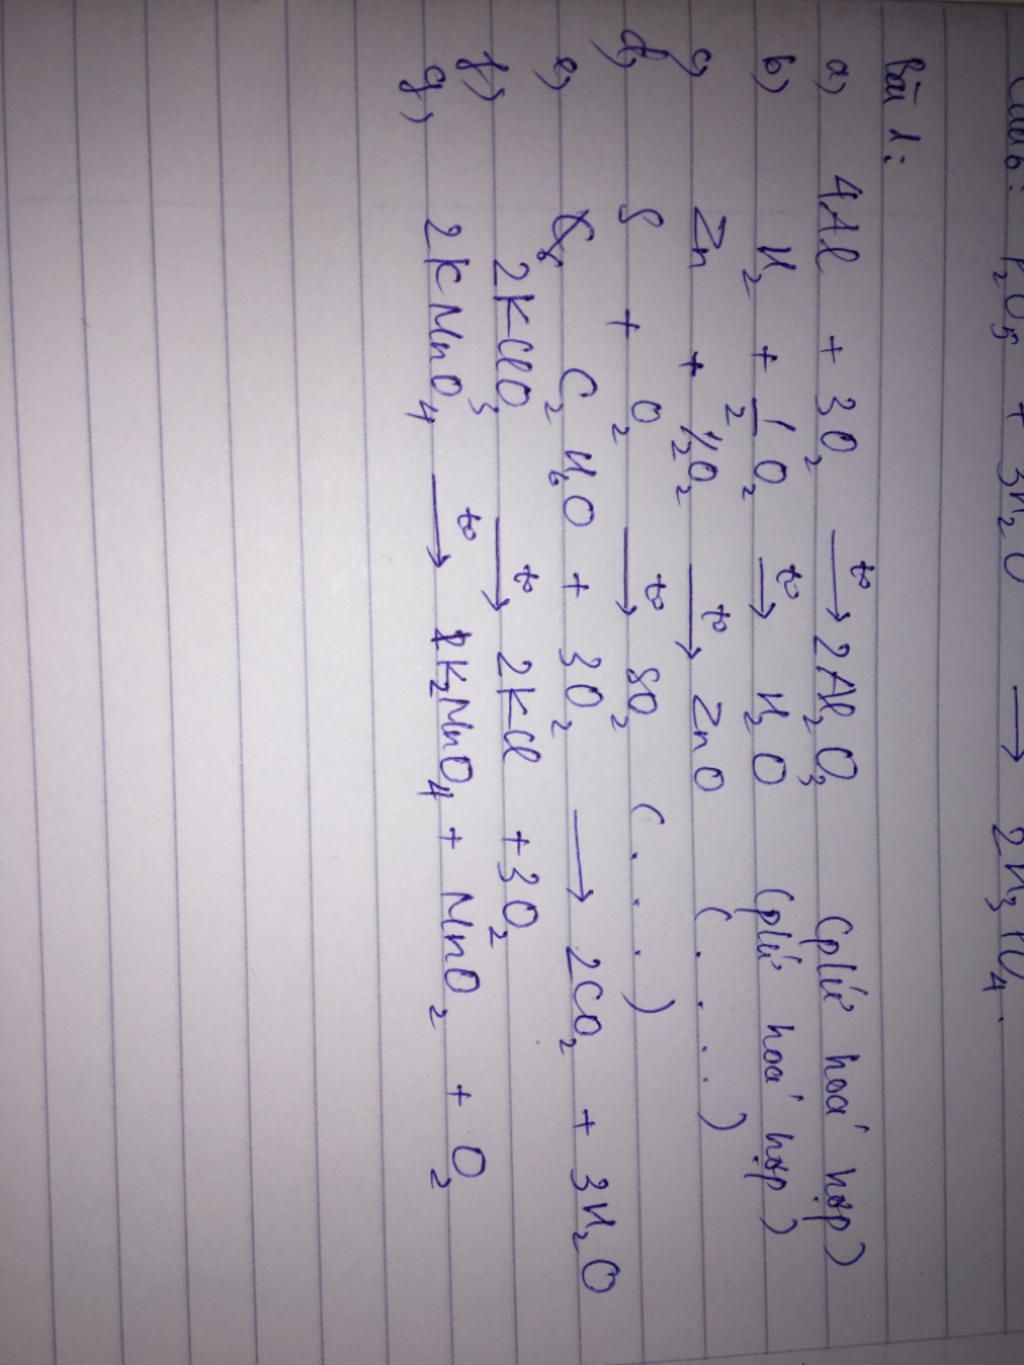 P₂O₅ + 3H₂O → 2H₃PO₄.
Bài 1:
a) 4Al + 3O₂ t⁰→ 2Al₂O₃ (pứ hoá hợp)
b) H₂ + 1/2 O₂ t⁰→ H₂O (pứ hoá hợp)
c) Zn + 1/2 O₂ t⁰→ ZnO (....)
d) S + O₂ t⁰→ SO₂ (....)
e) C₂H₆O + 3O₂ → 2CO₂ + 3H₂O
f) 2KClO₃ t⁰→ 2KCl + 3O₂
g) 2KMnO₄ t⁰→ K₂MnO₄ + MnO₂ + O₂